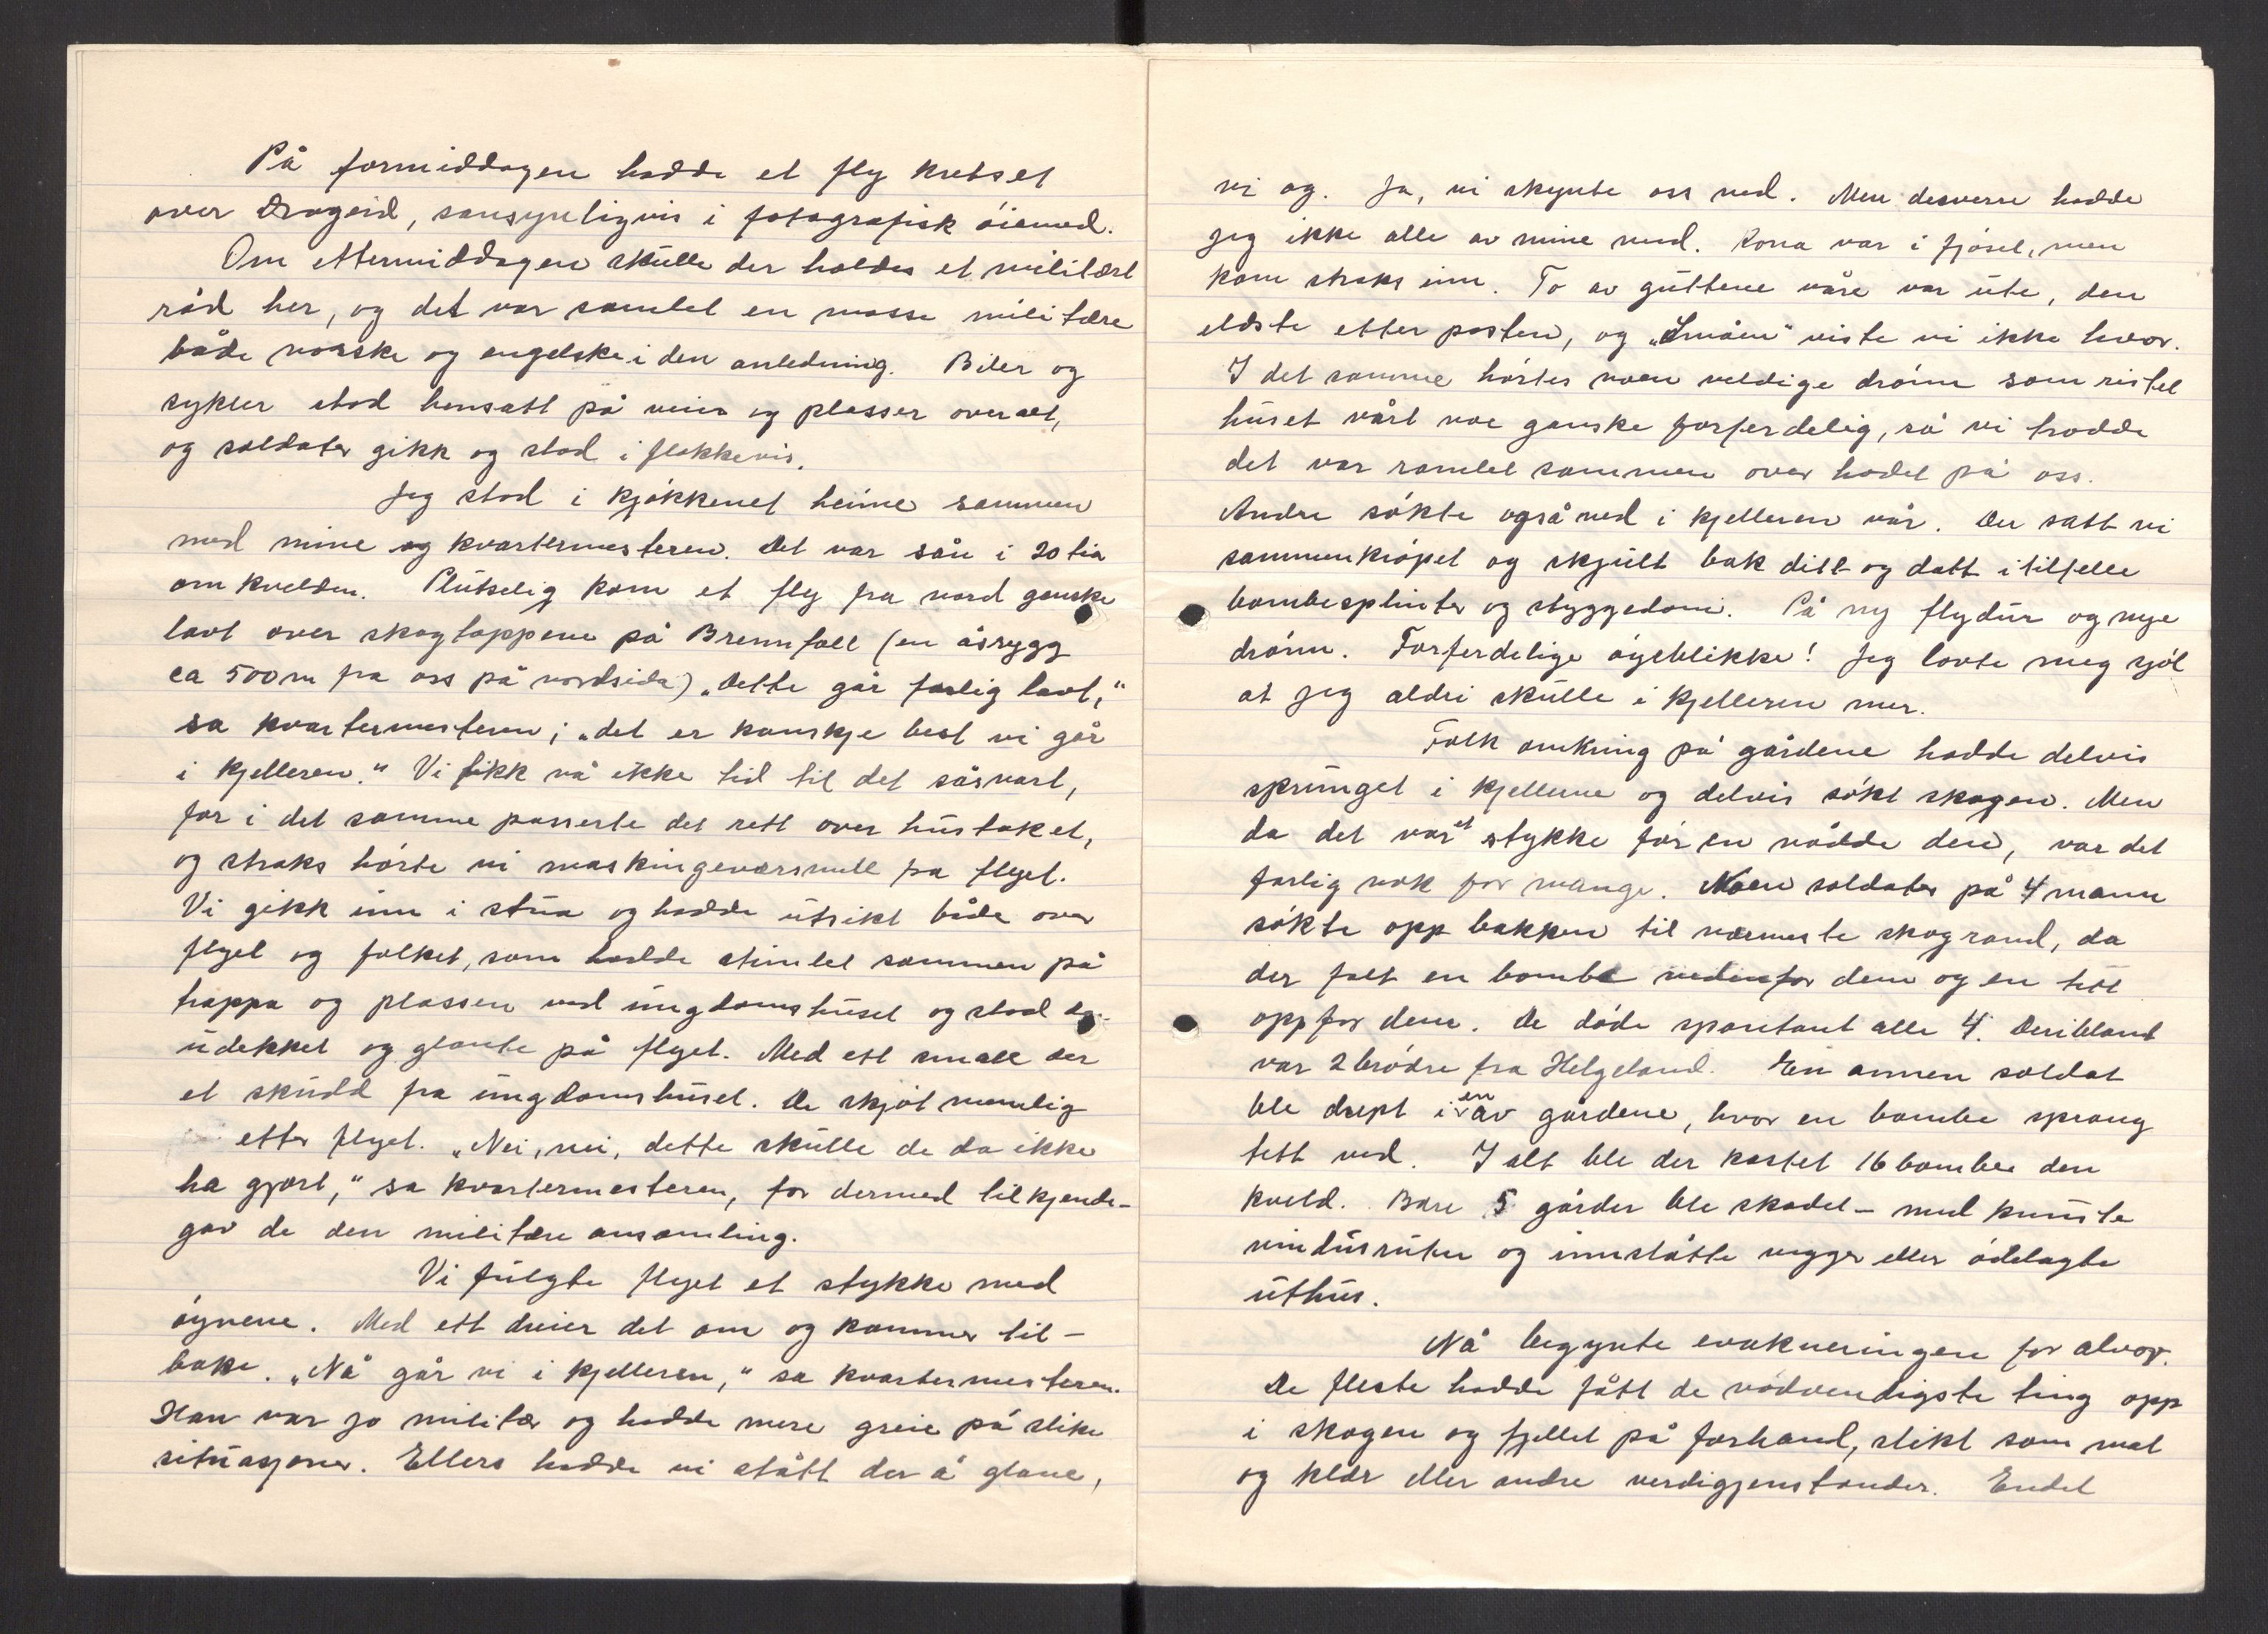 På formiddagen hadde et fly kretset
over Drageid, sansynligvis i fotografisk óiemed.
Om ettermiddagen skulle der holdes et militært
råd her, og det var samlet en masse militære
både norske og engelske i den anledning. Biler og
sykler stod hensatt på veier og plasser overalt,
og soldater gikk og stod i flokkevis.
Jeg stod i kjøkkenet heime sammen
med mine og kvartermesteren. Det var sån i 20 tia
om kvelden. Plutselig kom et fly fra nord ganske
lavt over skogtoppene på Brennfall (en åsrygg
ca 500 m fra oss på nordsida) „Dette går farlig lavt,"
sa kvartermesteren; „det er kanskje best vi går
i kjelleren." Vi fikk nå ikke tid til det såsnart,
for i det samme passerte det rett over hustaket,
og straks hørte vi maskingeværsmell fra flyet.
Vi gikk inn i stua og hadde utsikt både over
flyet og folket, som hadde stimlet sammen på
trappa og plassen ved ungdomshuset og stod
udekket og glante på flyet. Med ett small der
et skudd fra ungdomshuset. De skjøt nemlig
etter flyet. „Nei, nei, dette skulle de da ikke
ha gjort," sa kvartermesteren, for dermed tilkjende-
gav de den militære ansamling.
Vi fulgte flyet et stykke med
øynene. Med ett dreier det om og kommer til-
bake. „Nå går vi i kjelleren," sa kvartermesteren.
Han var jo militær og hadde mere greie på slike
situasjoner. Ellers hadde vi stått der å glane,
vi og. Ja, vi skynte oss ned. Men desverre hadde
jeg ikke alle av mine med. Kona var i fjøset, men
kom straks inn. To av guttene våre var ute, den
eldste etter posten, og „Småen" viste vi ikke hvor.
I det samme hørtes noen veldige drønn som ristet
huset vårt noe ganske forferdelig, så vi trodde
det var ramlet sammen over hodet på oss.
Andre søkte også ned i kjelleren vår. Der satt vi
sammenkrøpet og skjult bak ditt og datt i tilfelle
bombesplinter og styggedom. På ny flydur og nye
drønn. Forferdelige øyeblikke! Jeg lovte meg sjøl
at jeg aldri skulle i kjelleren mer.
Folk omkring på gårdene hadde delvis
sprunget i kjellerne og delvis søkt skogen. Men
da det var et stykke før en nådde den, var det
farlig nok for mange. Noen soldater på 4 mann
søkte opp bakken til nærmeste skogrand, da
der falt en bombe nedenfor dem og en tett
oppfor dem. De døde spontant alle 4. Deriblant
var 2 brødre fra Helgeland. En annen soldat
ble drept i en av gårdene, hvor en bombe sprang
tett ved. I alt ble der kastet 16 bomber den
kveld. Bare 5 gårder ble skadet - med knuste
vindusruter og innslåtte vegger eller ødelagte
uthus.
Nå begynte evakueringen for alvor.
De fleste hadde fått de nødvendigste ting opp
i skogen og fjellet på forhand, slikt som mat
og klær eller andre verdigjenstander. Endel